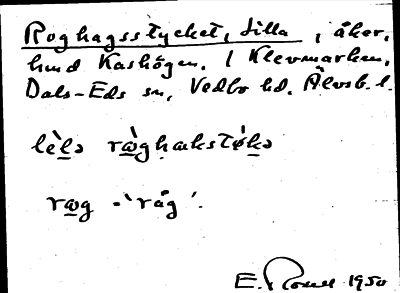 Roghagsstycket, Lilla, åker,
hmd Kashögen, / Klevmarken,
Dals-Eds sn, Vedbo hd, Älvsb. l.
lèlə ròghakstøkə
rog -'råg'.
E. 1950